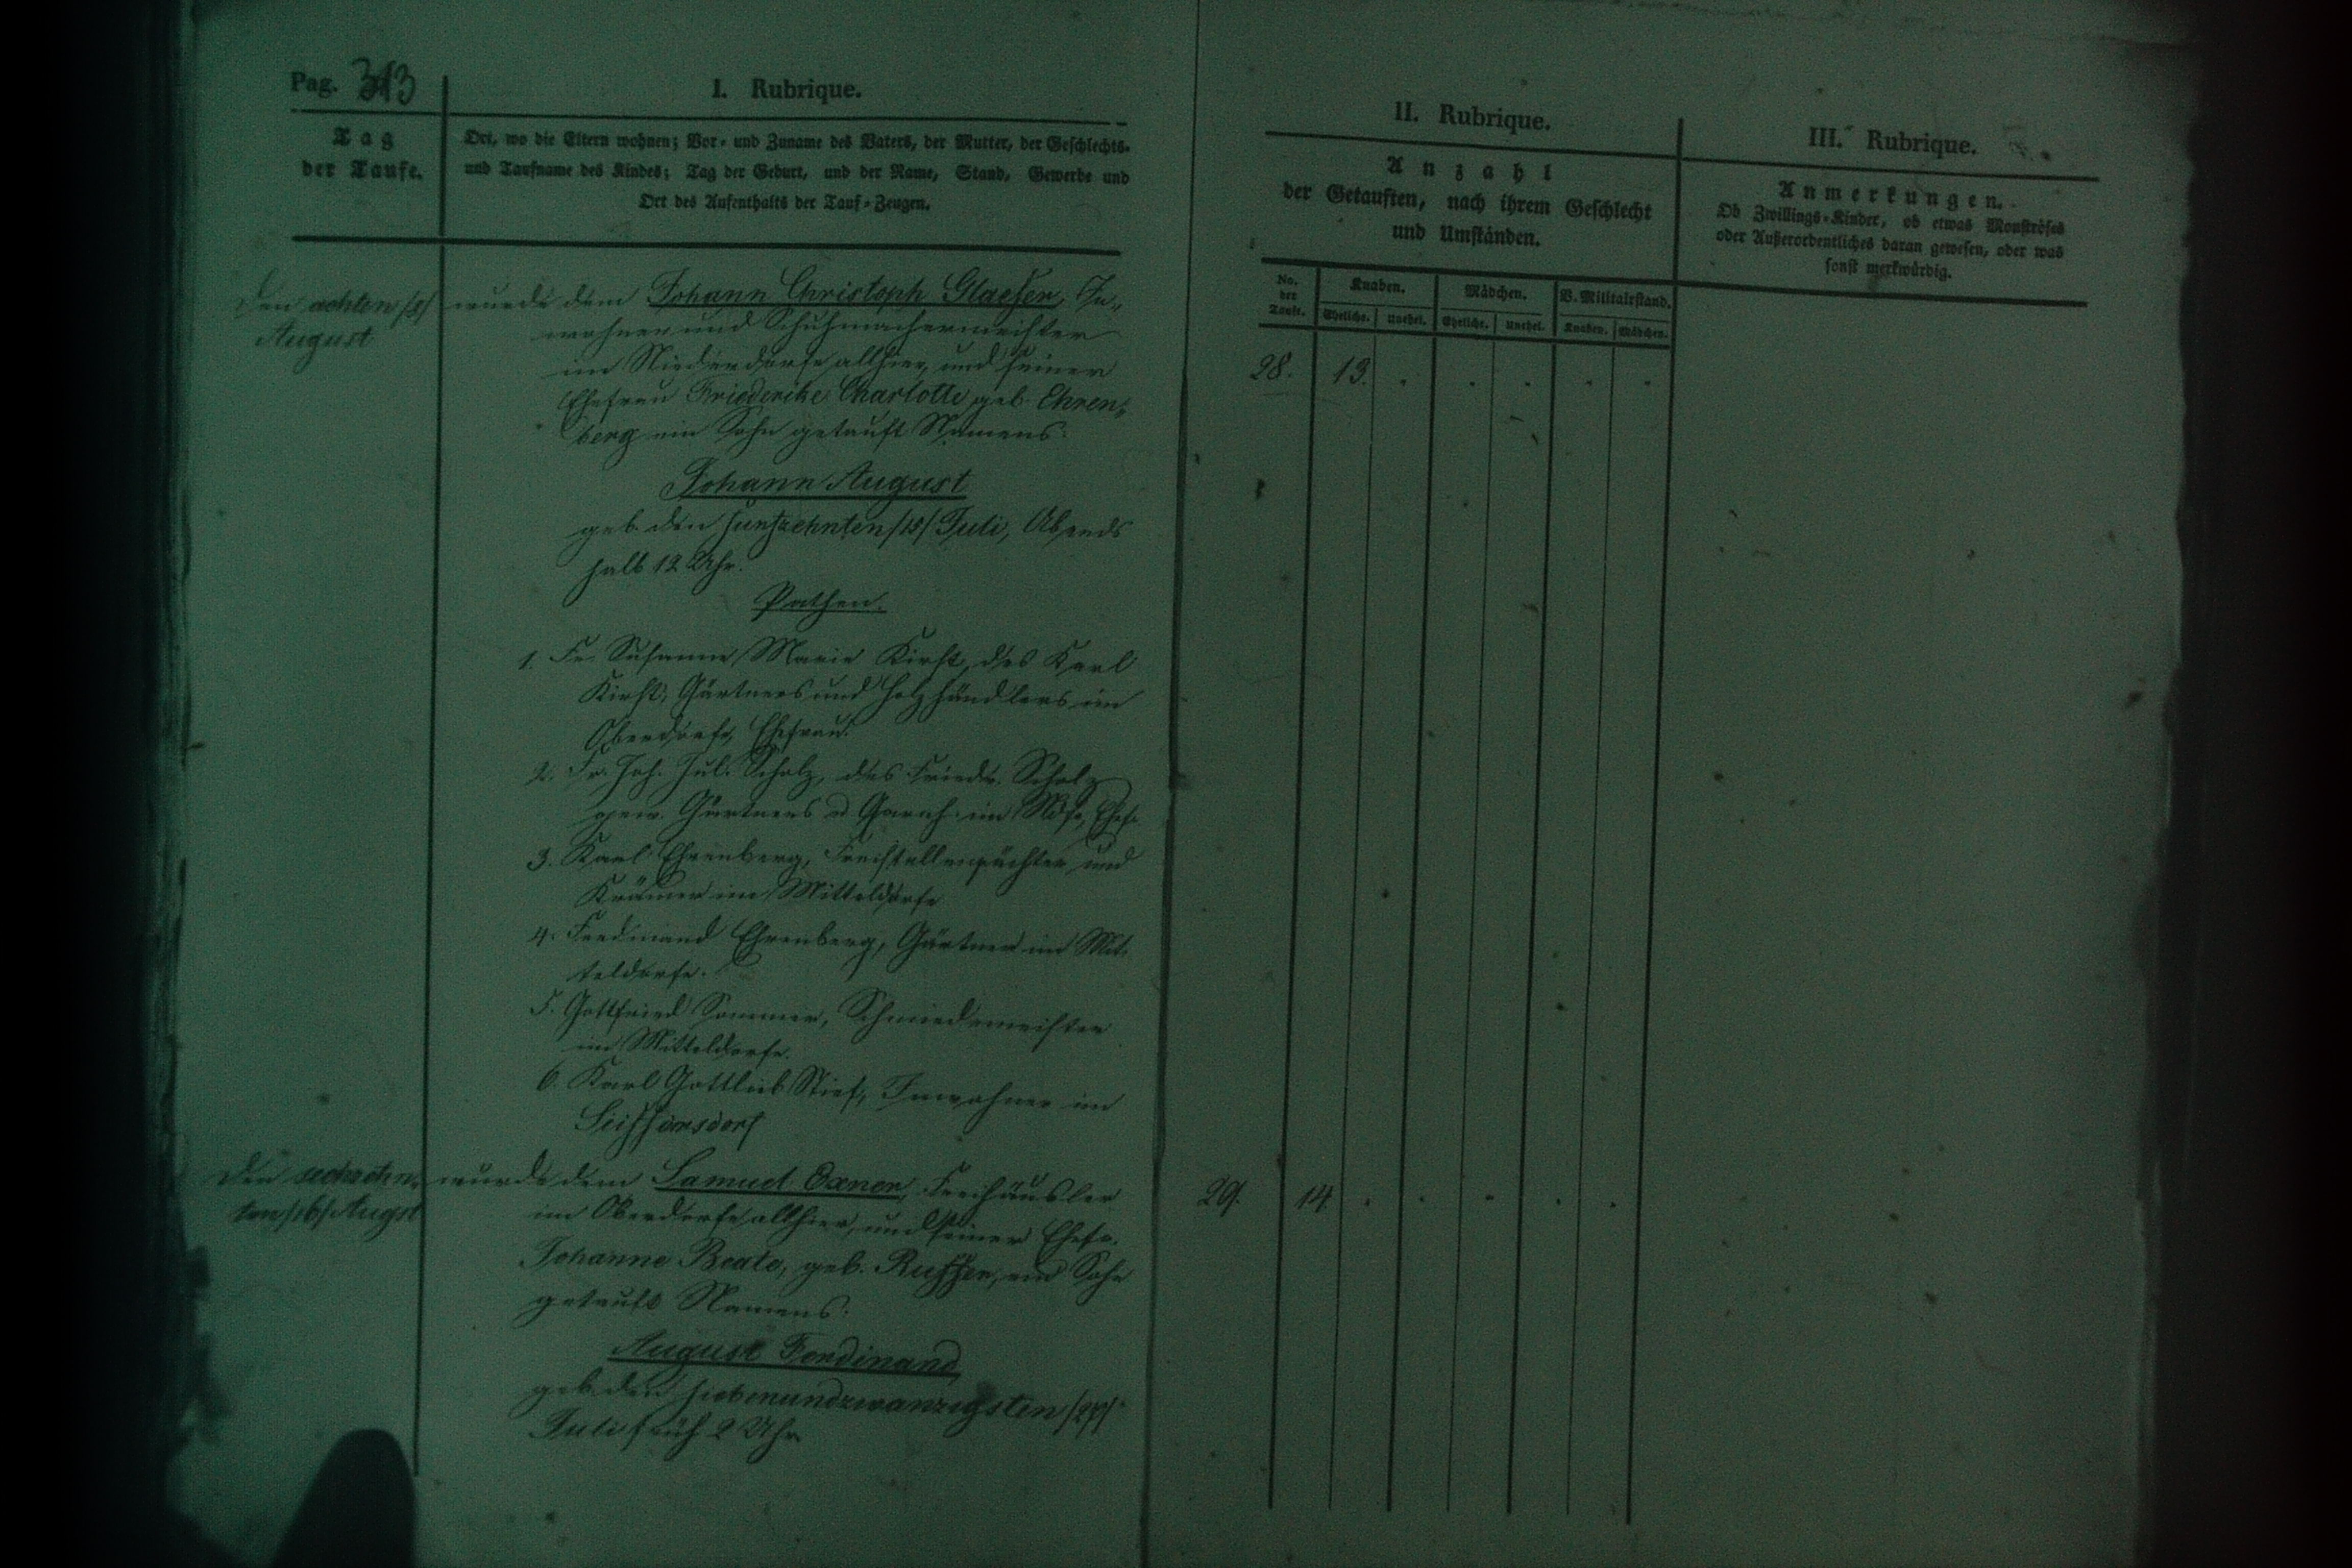 Pag. 313
I. Rubrique.
Tag
der Taufe.
Ort, wo die Eltern wohnen; Vor- und Zuname des Vaters, der Mutter, der Geschlechts-
und Taufname des Kindes; Tag der Geburt, und der Name, Stand, Gewerbe und
Ort des Aufenthalts der Tauf-Zeugen.
den achten /8/
August
wurde dem Johann Christoph Glaeser, In-
wohner und Schuhmachermeister
im Niederdorfe allhier, und seiner
Ehefrau Friederike Charlotte geb. Ehren-
berg ein Sohn getauft Namens:
Johann August
geb. den funfzehnten /15/ Juli, Abends
halb 12 Uhr.
Pathen.
1. Fr. Susanne Marie Kirst, des Karl
Kirst, Gärtners und Holzhändlers im
Oberdorfe, Ehefrau.
2. Fr. Joh. Jul. Scholz, des Friedr. Scholz
gew. Gärtners u Garnh. im Ndfe, Ehefr.
3. Karl Ehrenberg, Freistellenpächter und
Krämer im Mitteldorfe
4. Ferdinand Ehrenberg, Gärtner im Mit-
teldorfe.
5. Gottfried Sommer, Schmiedemeister
im Mitteldorfe.
6. Karl Gottlieb Stief, Inwohner im
Seiffersdorf
den sechzehn-
ten /16/ Augst
wurde dem Samuel Exner, Freihäusler
im Oberdorfe allhier, und seiner Ehefr.
Johanne Beate, geb. Ruffer, ein Sohn
getauft Namens:
August Ferdinand
geb. den siebenundzwanzigsten /27/
Juli früh 2 Uhr
II. Rubrique.
Anzahl
der Getauften, nach ihrem Geschlecht
und Umständen.
No.
der
Taufe.
Knaben.
Mädchen.
B. Militairstand.
Eheliche.
Unehel.
Eheliche.
Unehel.
Knaben.
Mädchen.
28. 13. . . . . .
29. 14. . . . . .
III. Rubrique.
Anmerkungen.
Ob Zwillings-Kinder, ob etwas Monströses
oder Außerordentliches daran gewesen, oder was
sonst merkwürdig.